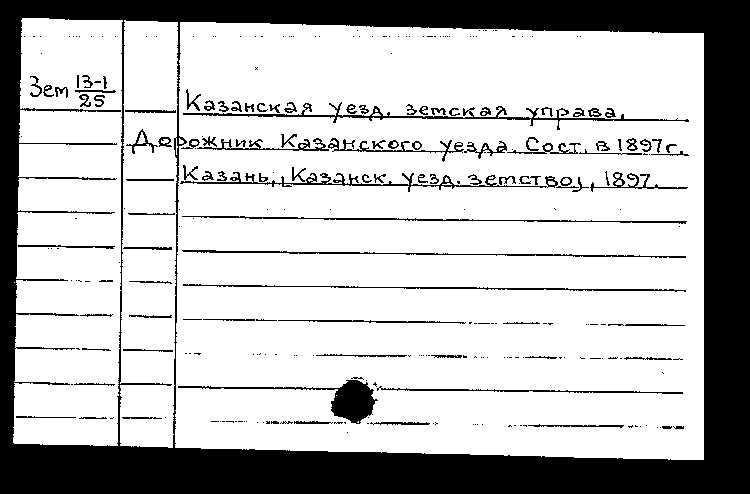 Зем 13-1/25
Казанская уезд. земская управа.
Дорожник Казанского уезда. Сост. в 1897 г.
Казань, [Казанск. уезд. земство], 1897.